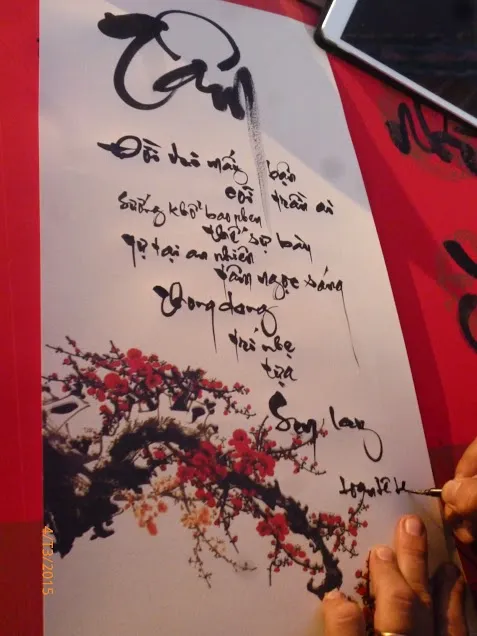 Tâm
trò mấy bận
cõi trần ai
Sướng khổ bao phen
thế sự bày
Tự tại an nhiên
tâm ngọc sáng
Thong dong
trí nhẹ
tựa
lay
4/13/2015